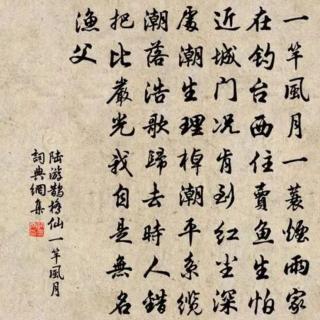 一竿風月一蓑煙雨家
在钓台西住賣魚生怕
近城门况肯到红塵深
處潮生理棹潮平系纜
潮落浩歌歸去時人錯
把比嚴光我自是無名
漁父
陸游鵲橋仙一竿風月
詞典網集